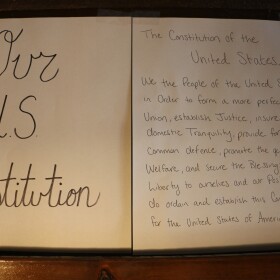 Our
U.S.
stitution
The Constitution of the
United States.
We the People of the United S
in Order to form a more perfec
Union, establish Justice, insure
domestic Tranquility, provide for
Common defence, promote the ge
Welfare, and secure the Blessing
Liberty to ourselves and our Pos
do ordain and establish this Con
for the United States of Americ